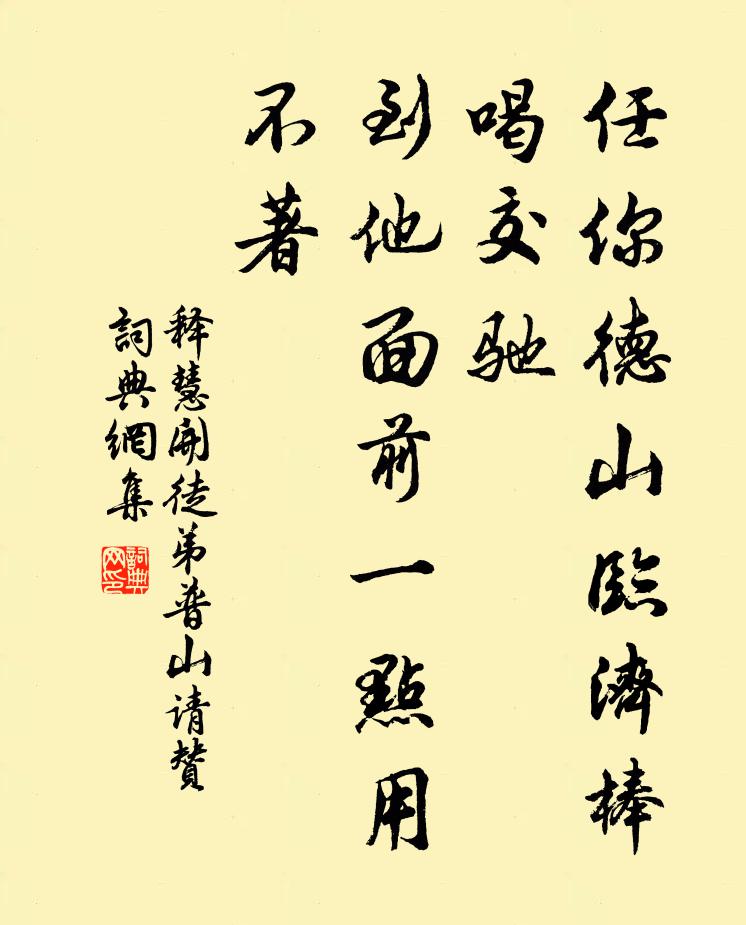 任你德山臨濟棒
喝交馳
到他面前一點用
不著
释慧開徒弟普山请贊
詞典網集
詞典網印